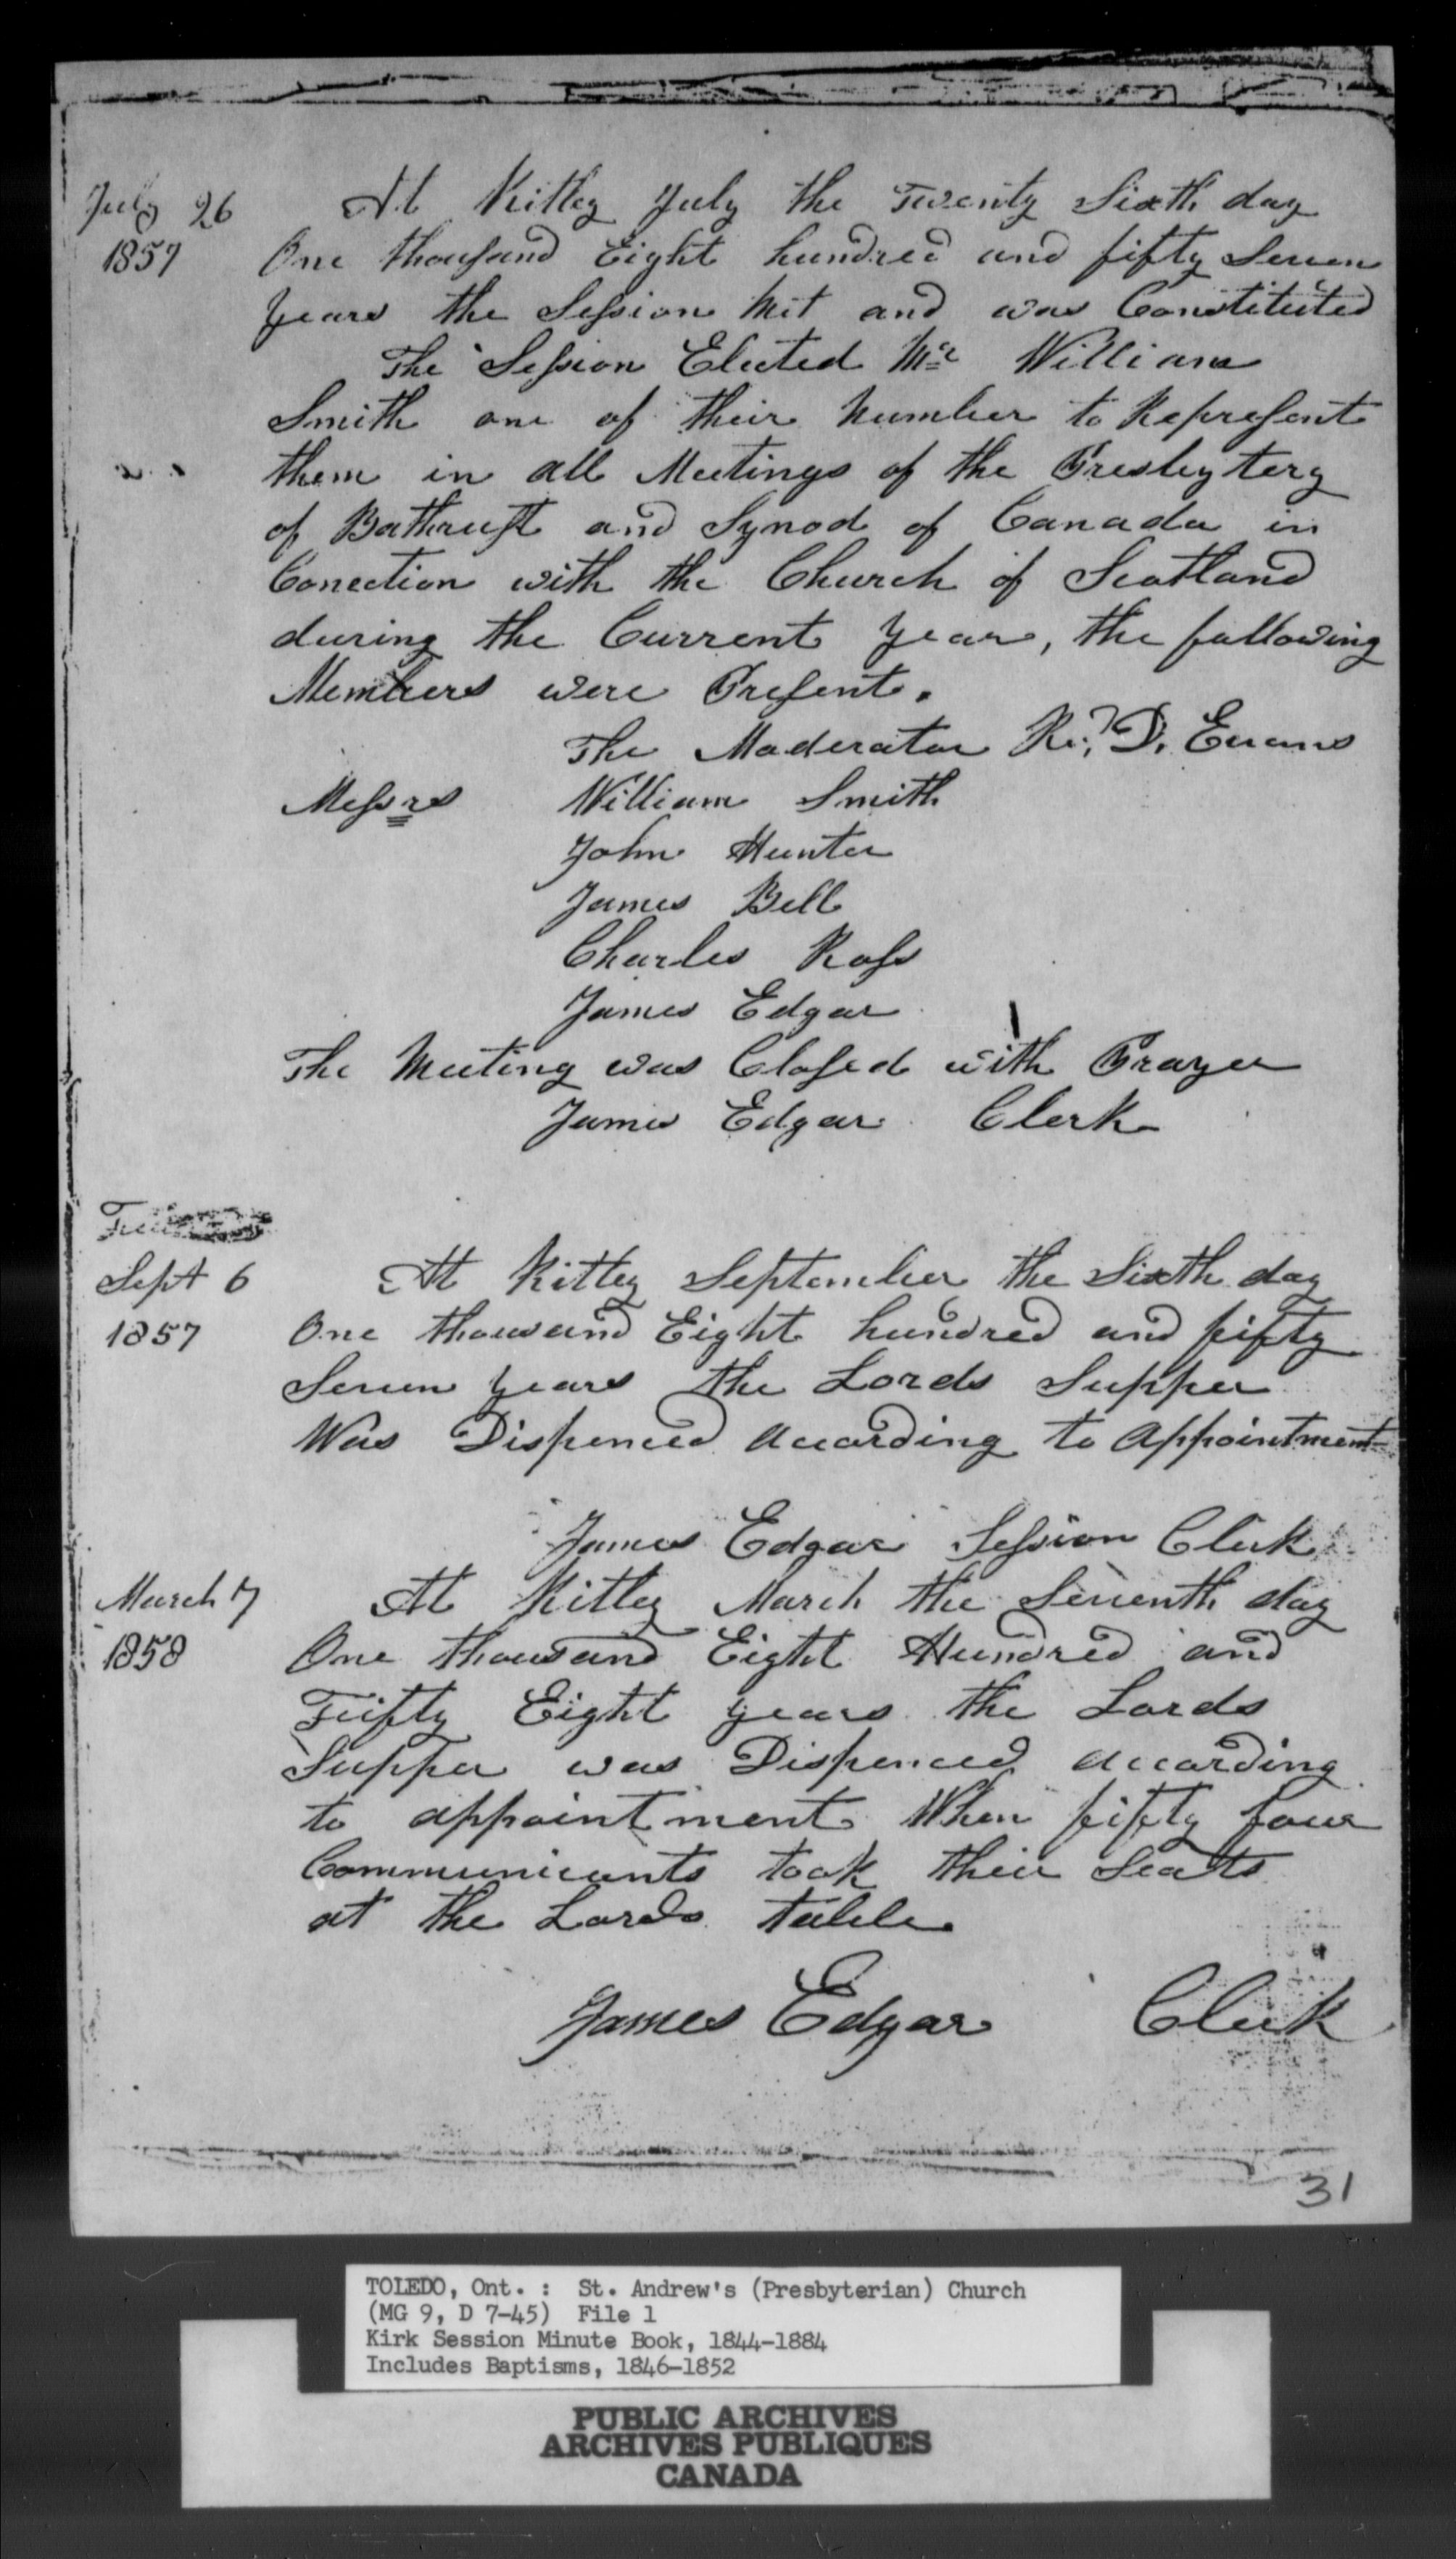 July 26
1857
At Kitley July the Twenty Sixth day
One thousand Eight hundred and fifty Seven
years the Session Met and was Constituted
The Session Elected Mr William
Smith one of their Number to Represent
them in all Meetings of the Presbytery
of Bathrust and Synod of Canada in
Conection with the Church of Scotland
during the Current year, the following
Members were Present.
The Moderator Rev,d D. Evans
Messrs William Smith
John Hunter
James Bell
Charles Ross
James Edgar
The Meeting was Closed with Prayer
James Edgar Clerk
Sept 6
1857
At Kitley September the Sixth day
One thousand Eight hundred and fifty
Seven years the Lords Supper
Was Dispenced According to Appointment
James Edgar Session Clerk
March 7
1858
At Kitley March the Seventh day
One thousand Eight Hundred and
Fifty Eight years the Lords
Supper was Dispenced according
to appointment When fifty four
Communicants took their Seats
at the Lords table
James Edgar Clerk
31
TOLEDO, Ont. : St. Andrew's (Presbyterian) Church
(MG 9, D 7-45) File 1
Kirk Session Minute Book, 1844-1884
Includes Baptisms, 1846-1852
PUBLIC ARCHIVES
ARCHIVES PUBLIQUES
CANADA